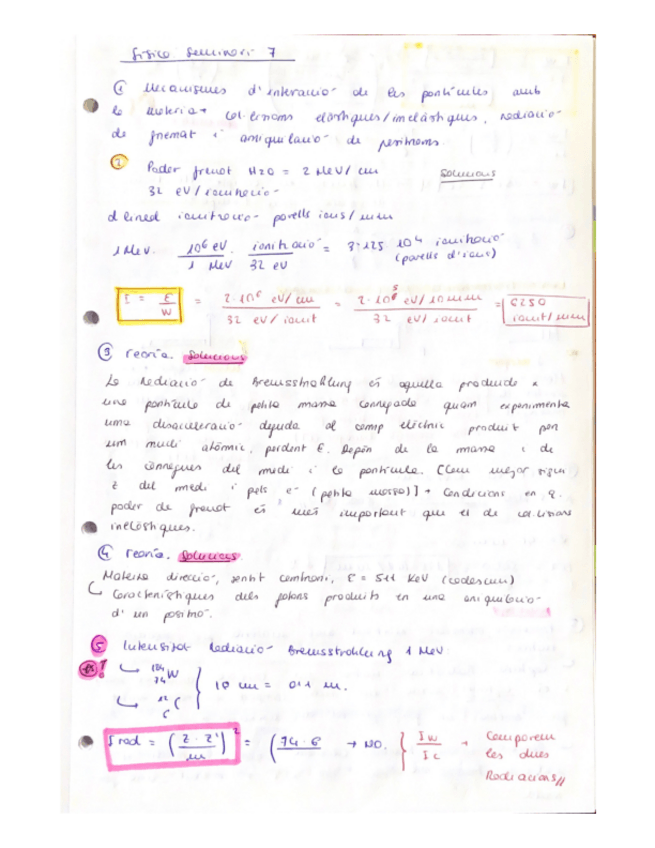 Física Seminari 7
① Mecanismes d'interacció de les partícules amb
la matèria → col·lisions elàstiques/inelàstiques, radiació
de frenat i aniquilació de positrons.
② Poder frenat H2O = 2 MeV/cm Solucions
32 eV/ionització
d lineal ionització parells ions/mm
1 MeV. 10⁶ eV / 1 MeV . ionització / 32 eV = 3.125 10⁴ ionització
(parells d'ions)
I = E / W = 2·10⁶ eV/cm / 32 eV/ionit = 2·10⁵ eV/10mm / 32 eV/ionit = 6250 ionit/mm
③ Teoria. Solucions
La Radiació de Bremsstrahlung és aquella produida a
una partícula de petita massa carregada quan experimenta
una desacceleració deguda al camp elèctric produit per
un nucli atòmic, perdent E. Depèn de la massa i de
les càrregues del medi i la partícula.
z del medi i pels e- (petita massa)] → Condicions en q.
poder de frenat és més important que el de col·lisions
inelàstiques.
④ Teoria. Solucions.
Mateixa direcció, sentit contrari, E = 511 KeV (cadascun)
Característiques dels fotons produits en una aniquilació
d'un positró.
⑤ Intensitat Radiació Bremsstrahlung 1 MeV.
184 74 W
10 cm = 0.1 m.
12 6 C
I rad = (Z·Z' / m)² = (74·6 → NO. } Iw / Ic → Comparem
les dues
Radiacions//